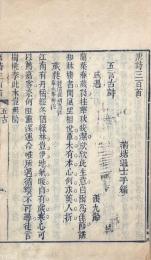 唐詩三百首
蘅塘退士手編
五言古詩
感遇 張九齡
蘭葉春葳蕤桂華秋皎潔欣欣此生意自爾爲佳節誰
知林棲者聞風坐相悅草木有本心何求美人折
江南有丹橘經冬猶綠林豈伊地氣暖自有歲寒心可
以薦嘉客奈何阻重深運命惟所遇循環不可尋徒言
樹桃李此木豈無陰
五古